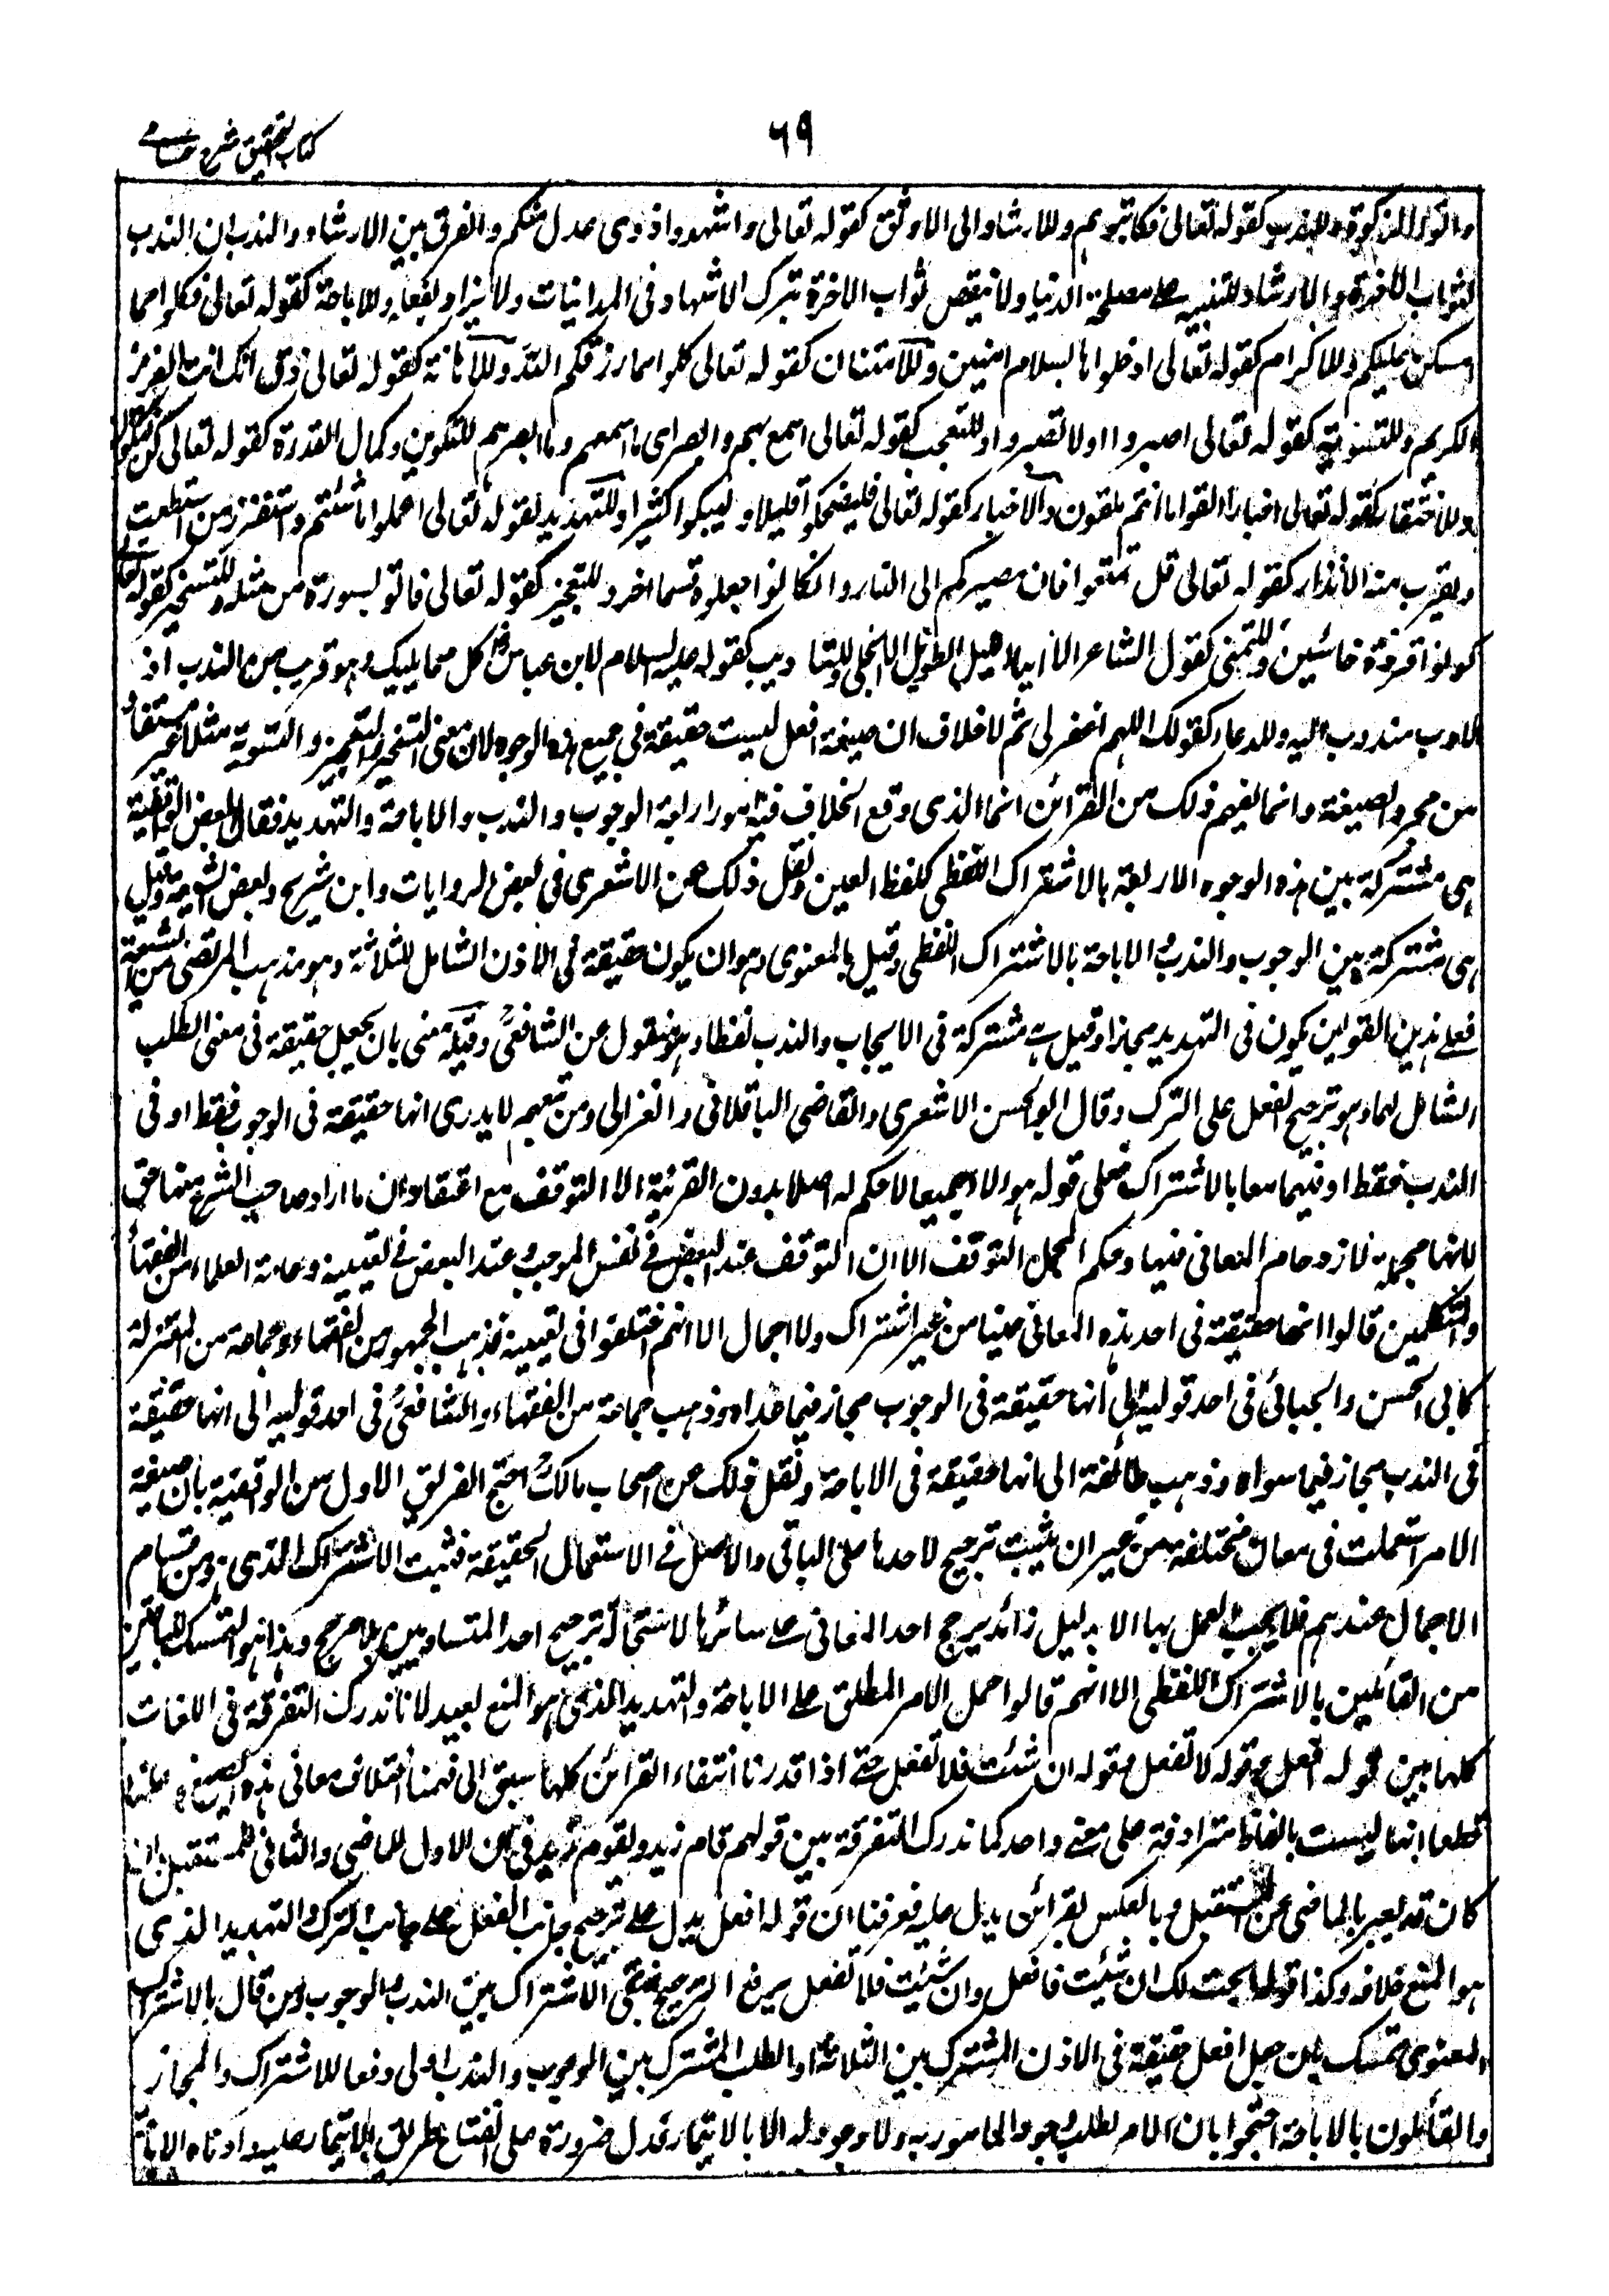 ٦٩
كتاب التحقيق شرح حسامى
واتوا الزكوة وللندب كقوله تعالى فكاتبوهم وللارشاد الى الاوثق كقوله تعالى واشهدوا ذوى عدل منكم والفرق بين الارشاد والندب ان الندب
لثواب الآخرة والارشاد للتنبيه على مصلحة الدنيا ولا ينقص ثواب الاخرة بترك الاشهاد فى المداينات ولا يزاد بفعله وللاباحة كقوله تعالى فكلوا مما
امسكن عليكم وللاكرام كقوله تعالى ادخلوها بسلام امنين وللامتنان كقوله تعالى كلوا مما رزقكم الله وللاهانة كقوله تعالى ذق انك انت العزيز
الكريم وللتسوية كقوله تعالى اصبروا اولا تصبروا وللتعجب كقوله تعالى اسمع بهم وابصر اى ما اسمعهم وما ابصرهم للتكوين وكمال القدرة كقوله تعالى كن فيكون
وللاحتقار كقوله تعالى اخبارا القوا ما انتم ملقون وللاخبار كقوله تعالى فليضحكوا قليلا وليبكوا كثيرا وللتهديد لقوله تعالى اعملوا ما شئتم واستفزز من استطعت
ويقرب منه الانذار كقوله تعالى قل تمتعوا فان مصيركم الى النار وان كانوا جعلوه قسما اخر وللتعجيز كقوله تعالى فاتوا بسورة من مثله وللتسخير كقوله تعالى
كونوا قردة خاسئين وللتمنى كقول الشاعر الا ايها الليل الطويل الا انجلى وللتاديب كقوله عليه السلام لابن عباس كل مما يليك وهو قريب من الندب اذ
الادب مندوب اليه وللدعاء كقولك اللهم اغفر لى ثم لا خلاف ان صيغة افعل ليست حقيقة فى جميع هذه الوجوه لان معنى التسخير والتعجيز والتسوية مثلا غير مستفاد
من مجرد الصيغة وانما يفهم ذلك من القرائن انما الذى وقع الخلاف فيه امور اربعة الوجوب والندب والاباحة والتهديد فقال بعض الواقفية
هى مشتركة بين هذه الوجوه الاربعة بالاشتراك اللفظى كلفظ العين ونقل ذلك عن الاشعرى فى بعض الروايات وابن شريح وبعض الشيعة وقيل
هى مشتركة بين الوجوب والندب والاباحة بالاشتراك اللفظى وقيل بالمعنوى وهو ان يكون حقيقة فى الاذن الشامل للثلاثة وهو مذهب المرتضى من الشيعة
فعلى هذين القولين يكون فى التهديد مجازا وقيل هى مشتركة فى الايجاب والندب لفظا وهو منقول عن الشافعى وقيل معنى بان يجعل حقيقة فى معنى الطلب
الشامل لهما وهو ترجيح الفعل على الترك وقال ابو الحسن الاشعرى والقاضى الباقلانى والغزالى ومن تبعهم لا يدرى انها حقيقة فى الوجوب فقط او فى
الندب فقط او فيهما معا بالاشتراك فعلى قول هولاء جميعا لا حكم له اصلا بدون القرينة الا التوقف مع اعتقاد ان ما اراد صاحب الشرع منها حق
لانها مجملة لازدحام المعانى فيها وحكم المجمل التوقف الا ان التوقف عند البعض فى نفس الموجب وعند البعض فى تعيينه وعامة العلماء من الفقهاء
والمتكلمين قالوا انها حقيقة فى احد هذه المعانى عينا من غير اشتراك ولا اجمال الا انهم اختلفوا فى تعيينه فذهب الجمهور من الفقهاء وجماعة من المعتزلة
كابى الحسن والجبائى فى احد قوليه الى انها حقيقة فى الوجوب مجاز فيما عداه وذهب جماعة من الفقهاء والشافعى فى احد قوليه الى انها حقيقة
فى الندب مجاز فيما سواه وذهب طائفة الى انها حقيقة فى الاباحة ونقل ذلك عن اصحاب مالك احتج الفريق الاول من الواقفية بان صيغة
الامر استعملت فى معان مختلفة من غير ان يثبت ترجيح لاحدها على الباقى والاصل فى الاستعمال الحقيقة فثبت الاشتراك الذى هو من اقسام
الاجمال عندهم فلا يجب العمل بها الا بدليل زائد يرجح احد المعانى على سائرها لاستحالة ترجيح احد المتساويين بلا مرجح وهذا هو التمسك للباقين
من القائلين بالاشتراك اللفظى الا انهم قالوا حمل الامر المطلق على الاباحة والتهديد الذى هو المنع بعيد لانا ندرك التفرقة فى اللغات
كلها بين قوله افعل وقوله لا تفعل وقوله ان شئت فلا تفعل حتى اذا قدرنا انتفاء القرائن كلها سبق الى فهمنا اختلاف معانى هذه الصيغ وعلمنا
قطعا انها ليست بالفاظ مترادفة على معنى واحد كما ندرك التفرقة بين قولهم قام زيد ويقوم زيد فى ان الاول للماضى والثانى للمستقبل وان
كان قد يعبر بالماضى عن المستقبل وبالعكس لقرائن يدل عليه فعرفنا ان قوله افعل يدل على ترجيح جانب الفعل على جانب الترك والتهديد الذى
هو المنع خلافه وكذا قوله ابحت لك ان شئت فافعل وان شئت فلا تفعل يرفع الترجيح فبقى الاشتراك بين الندب والوجوب ومن قال بالاشتراك
المعنوى تمسك بان جعل افعل حقيقة فى الاذن المشترك بين الثلاثة او الطلب المشترك بين الوجوب والندب اولى دفعا للاشتراك والمجاز
والقائلون بالاباحة احتجوا بان الامر لطلب وجود المامور به ولا وجود له الا بالايتمار فدل ضرورة على انفتاح طريق الايتمار عليه وادناه الاباحة